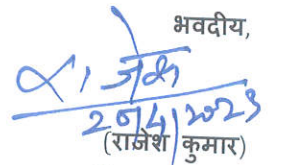 भवदीय,
20/4/2023
(राजेश कुमार)